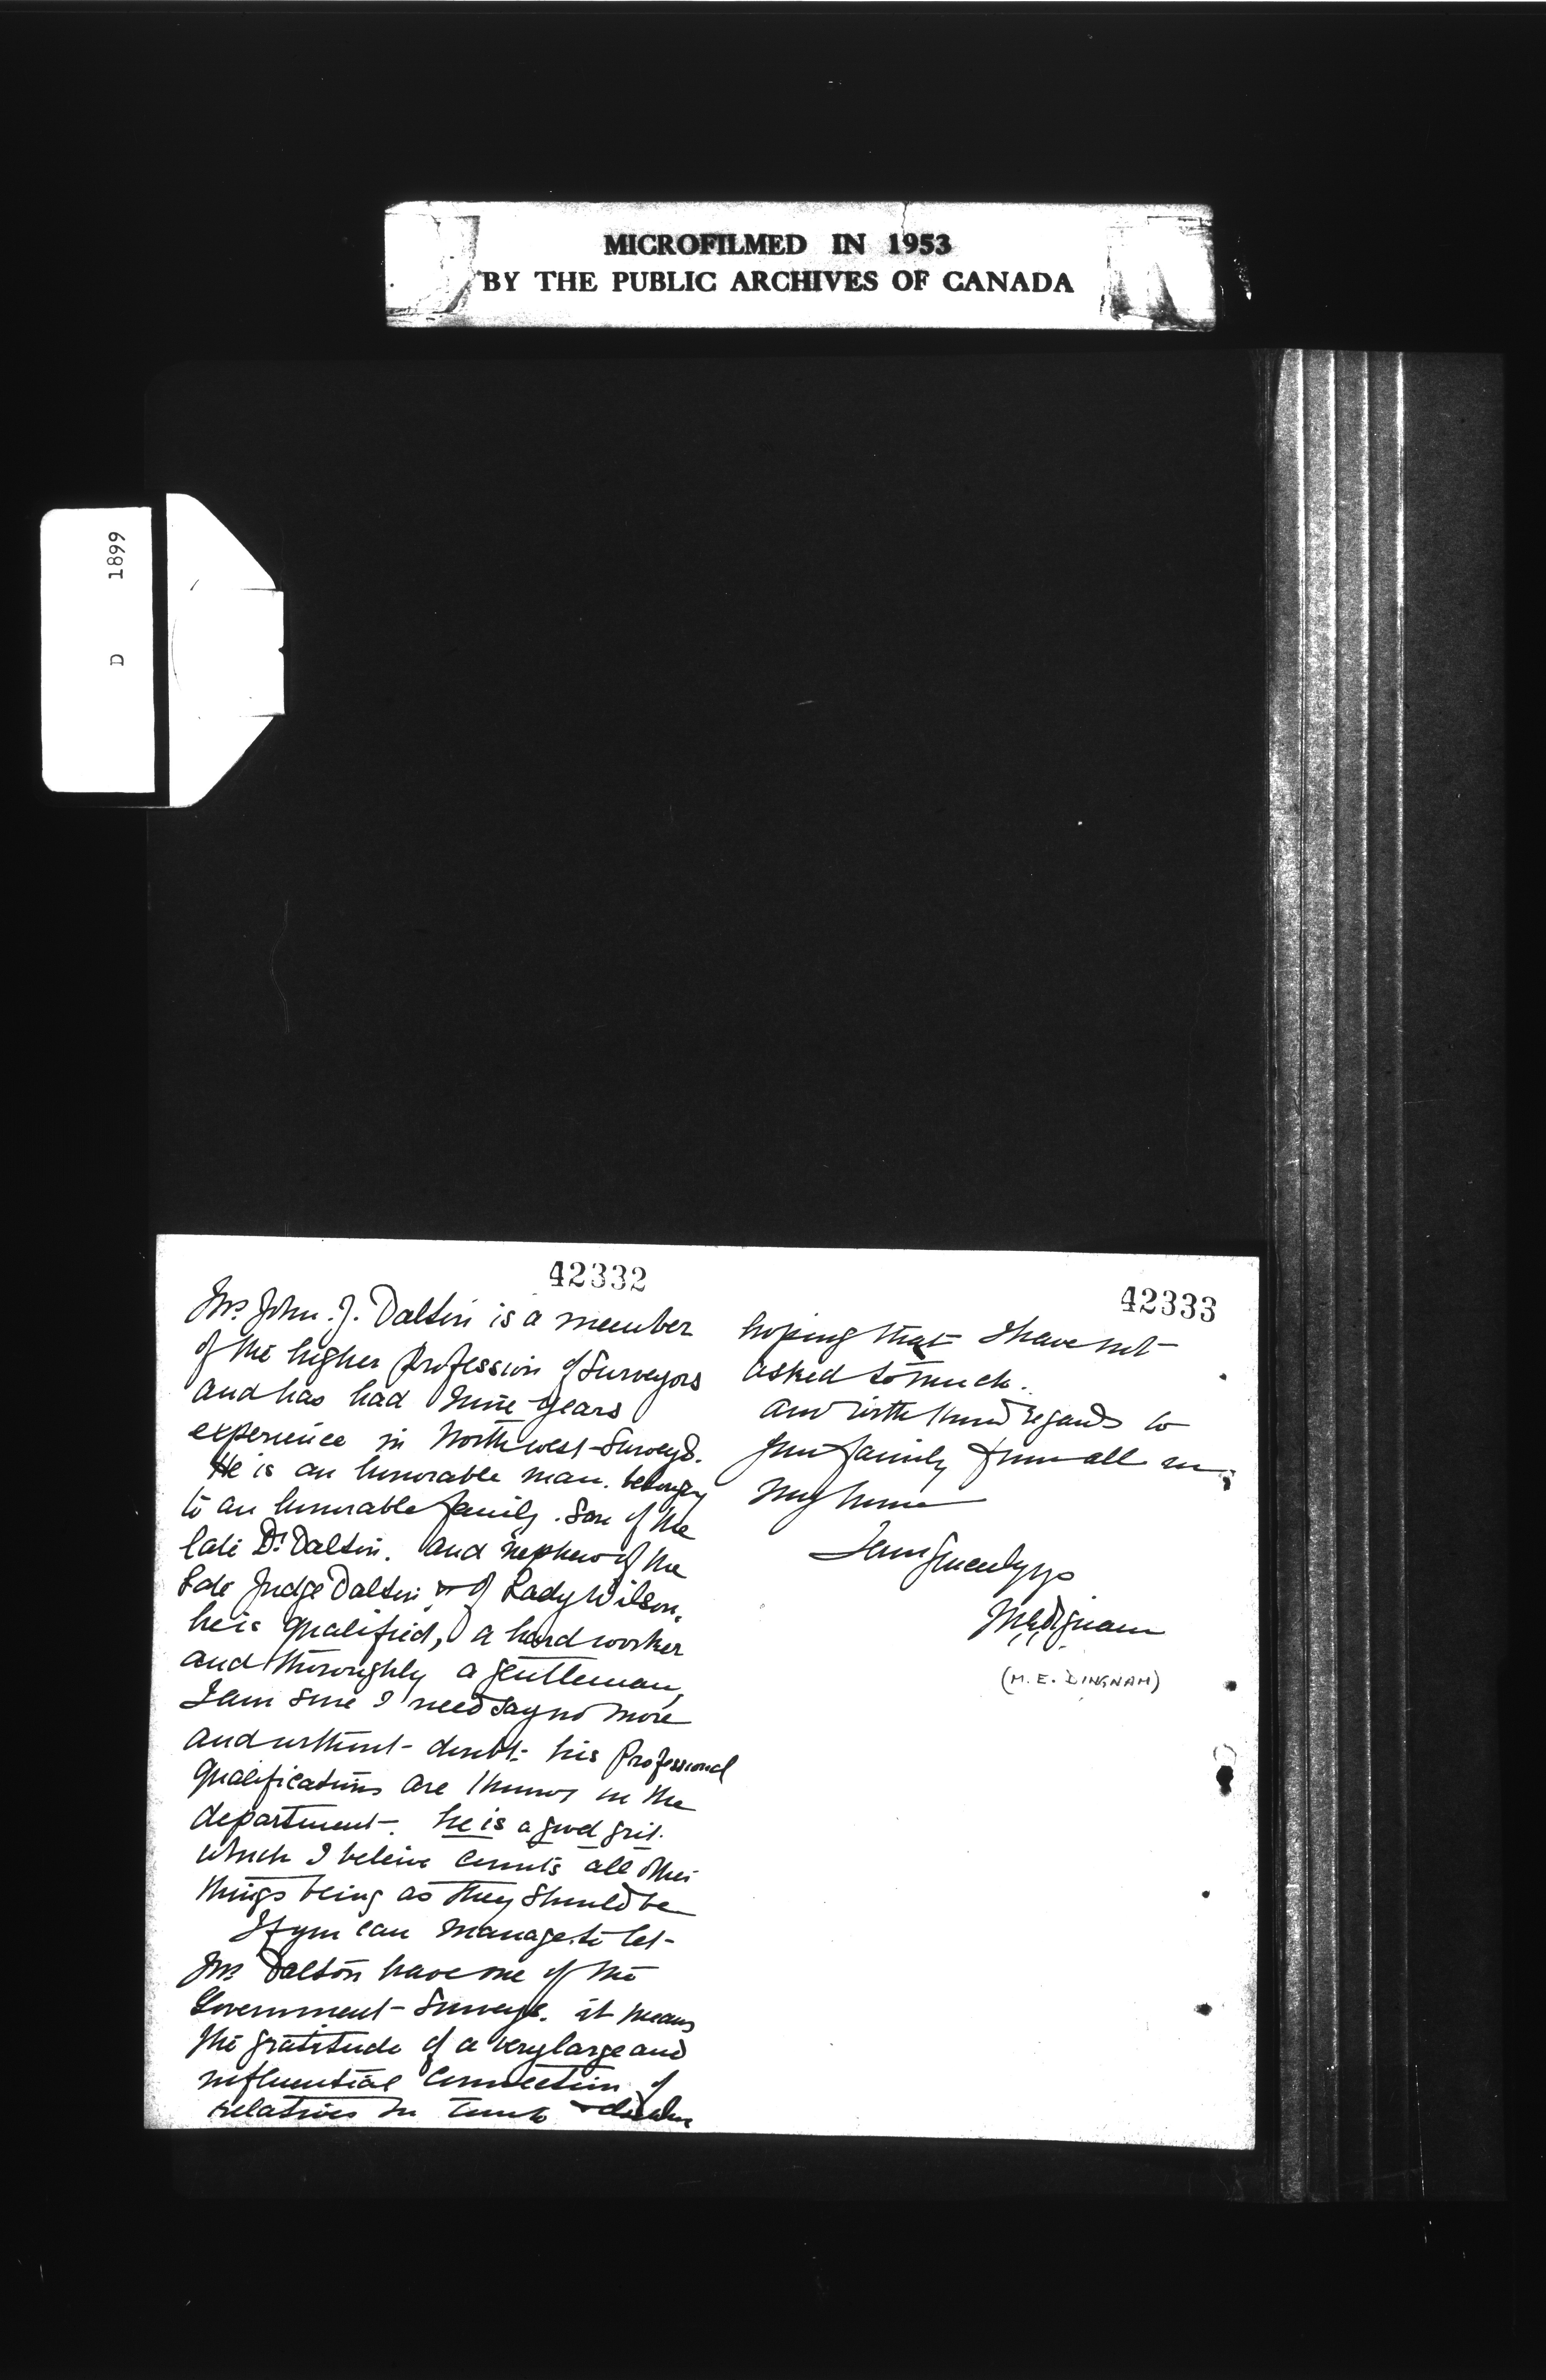 MICROFILMED IN 1953
BY THE PUBLIC ARCHIVES OF CANADA
D 1899
42332
Mr. John. J. Dalton is a member
of the higher profession of Surveyors
and has had nine years
experience in North west Surveys.
He is an honorable man. belonging
to an honorable family. Son of the
late Dr. Dalton. and nephew of the
late Judge Dalton, & of Lady Wilson.
he is qualified, a hard worker
and thoroughly a gentleman,
I am sure I need say no more
and without doubt his professional
qualifications are known in the
department. he is a good grit.
which I beleive counts all other
things being as they should be
If you can manage to let
Mr Dalton have one of the
Government Surveys. it means
the gratitude of a very large and
influential connection of
relatives in
42333
hoping that I have not
asked to much.
and with kind regards to
your family from all in
my home
I am Sincerely yrs
M E Dignam
(M. E. DINGNAM)